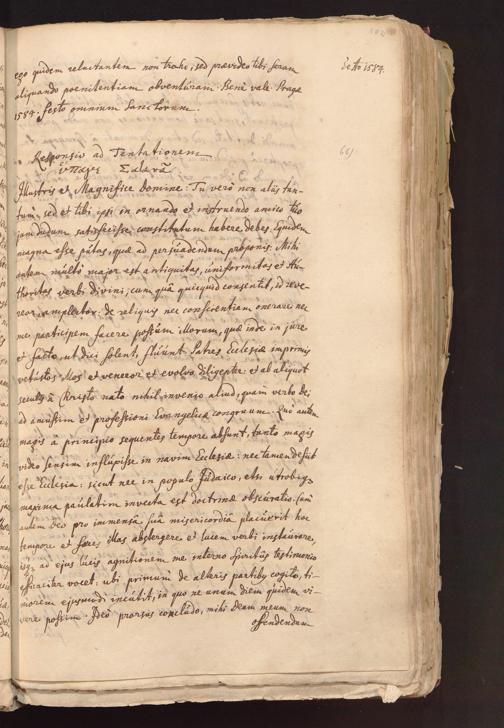 102
de Ao 1584.
ego quidem reluctantem non traho, sed prævideo tibi seram
aliquando poenitentiam obventuram. Bene vale. Pragæ
1584. festo omnium Sanctorum.
661
Responsio ad Tentationem
υπαγε Σατανᾶ
Illustris et Magnifice Domine: Tu verò non aliis tan-
tum, sed et tibi ipsi in ornando et instruendo amico tuo
jamdudum satisfecisse constitutum habere debes. Equidem
magna esse putas, quæ ad persuadendum proponis. Mihi
autem multò major est antiquitas, uniformitas et Au-
thoritas verbi divini: cum quâ quicquid consentit, id reve-
reor, amplector: de reliquis nec conscientiam onerare, nec
me participem facere possum illorum, quæ inde in jure
et facto, ut dici solent, fluunt. Patres Ecclesiæ inprimis
vetustos illos et veneror et evolvo diligenter: et ab aliquot
seculis à Christo nato nihil invenio aliud, quàm verbo Dei
ad amussim et professioni Evangelicæ congruum. Quò autem
magis à principio sequentes tempore absunt, tanto magis
video sensim influxisse in navim Ecclesiæ: nec tamen desiit
esse Ecclesia: sicut nec in populo Judaico, etsi utrobiqz
maxima paulatim invecta est doctrinæ obscuratio. Cum
autem Deo pro immensa suâ misericordiâ placuerit hoc
tempore et fæces illas abstergere et lucem verbi instaurare,
isqz ad ejus lucis agnitionem me interno Spiritus testimonio
efficaciter vocet: ubi primum de alteris partibus cogito, ti-
morem ejusmodi incutit, in quo ne unum diem quidem vi-
vere possim. Ideò prorsus concludo, mihi Deum meum non
offendendum